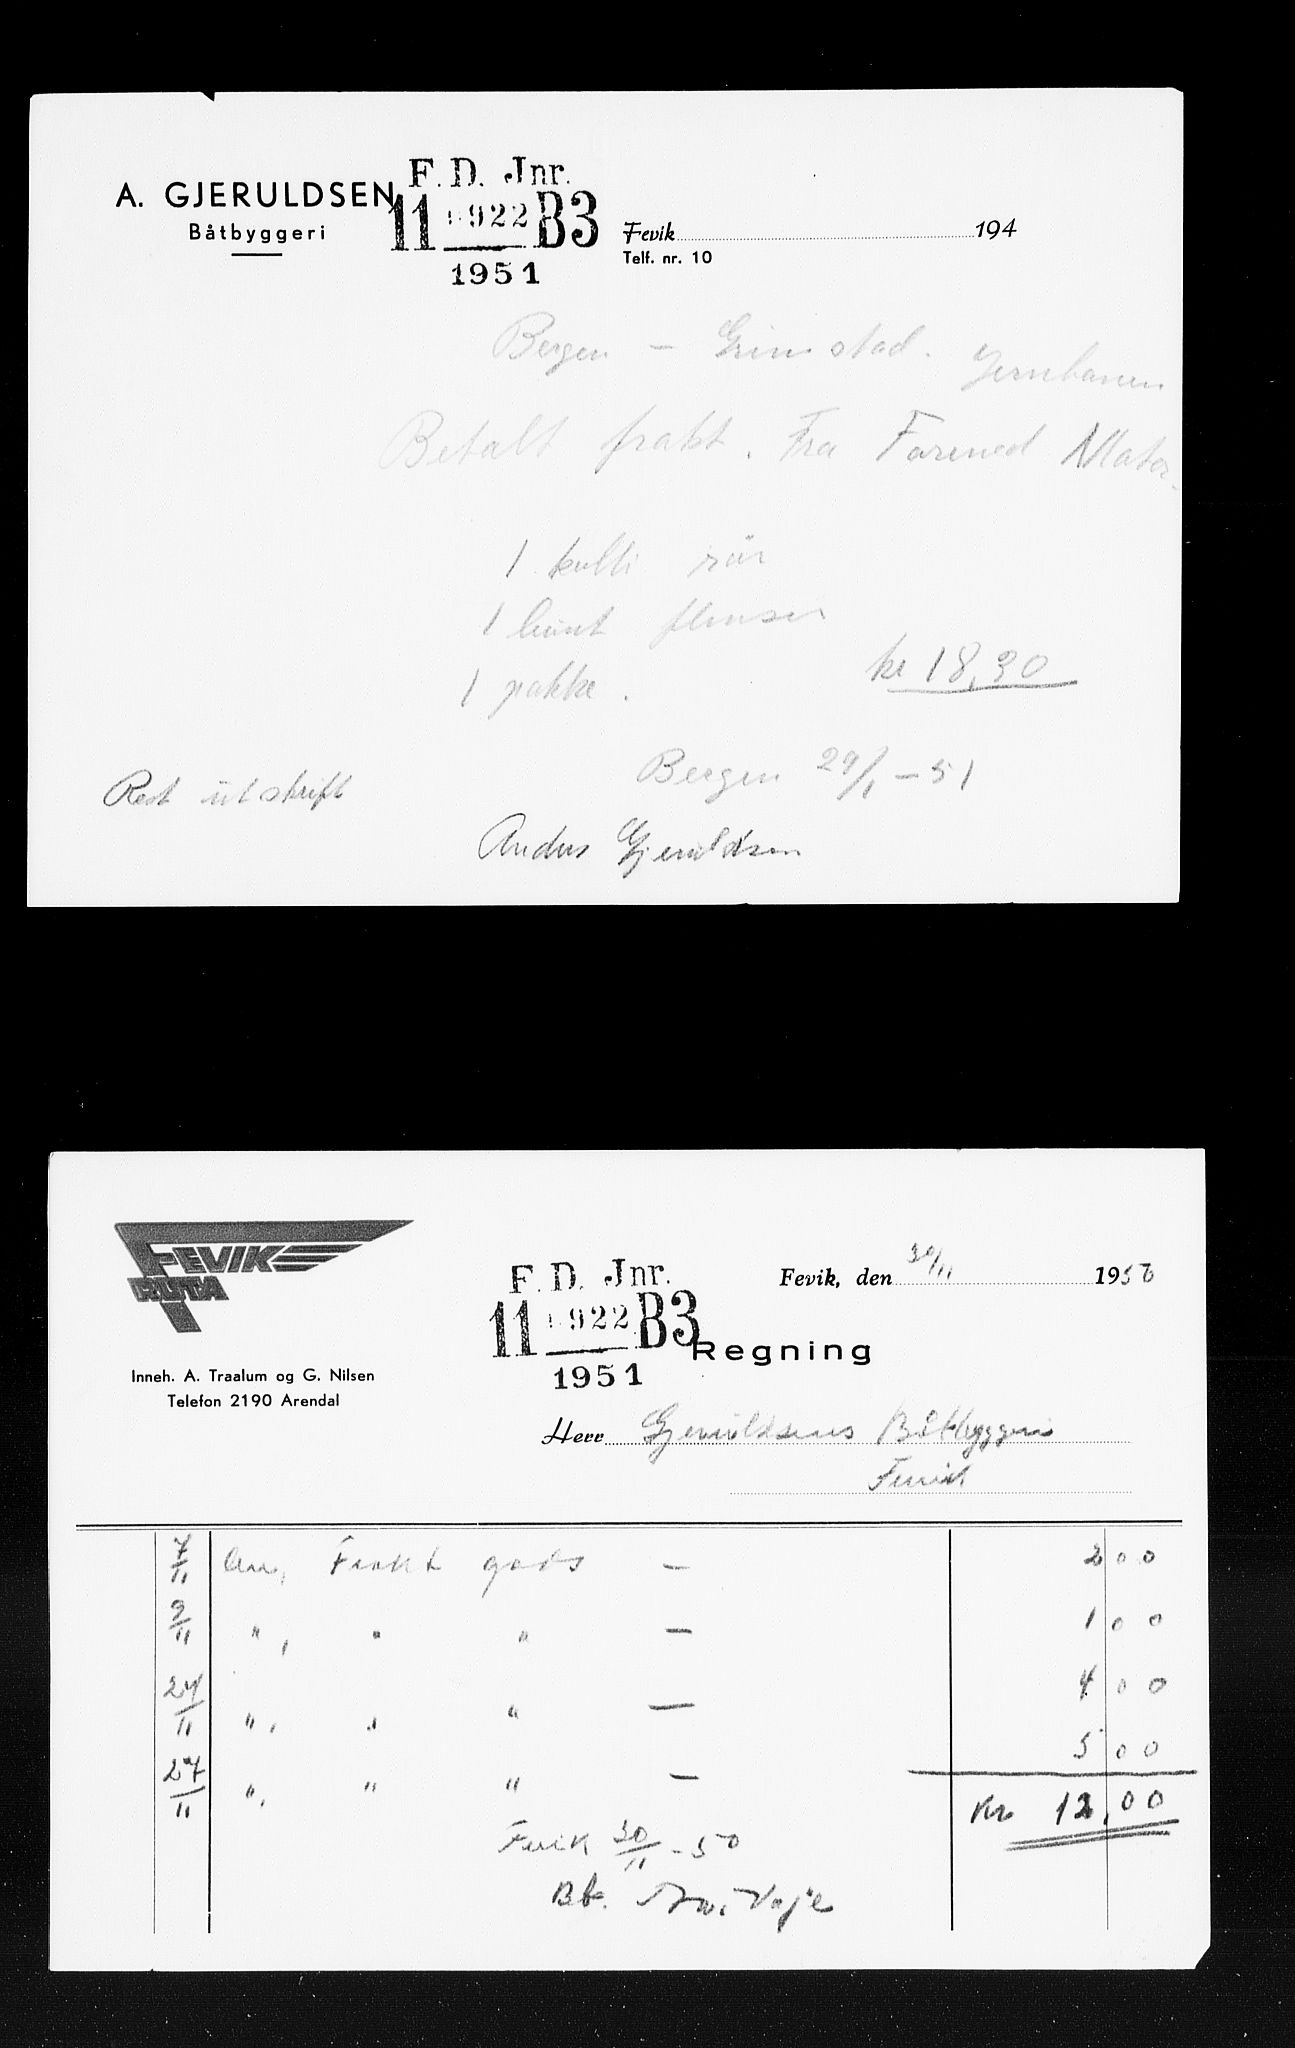 A. GJERULDSEN
Båtbyggeri
F. D. Jnr.
11 922 B3
1951
Fevik 194
Telf. nr. 10
Bergen – Grimstad. Jernbanen
Betalt frakt. Fra Farmed Mater.
1 kolli rör
1 bunt flenser
1 pakke.
kr 18,30
Rest utskrift
Bergen 29/1 – 51
Anders Gjeruldsen
FEVIK
RUTA
Inneh. A. Traalum og G. Nilsen
Telefon 2190 Arendal
F. D. Jnr.
11 922 B3
1951
Fevik, den 30/11 1950
Regning
Herr Gjeruldsens Båtbyggeri
Fevik
7/11 An, Frakt gods – 2 00
9/11 " , " " – 1 00
24/11 " , " " – 4 00
27/11 " , " " – 5 00
Kr 12,00
Fevik 30/11 - 50
Bt.